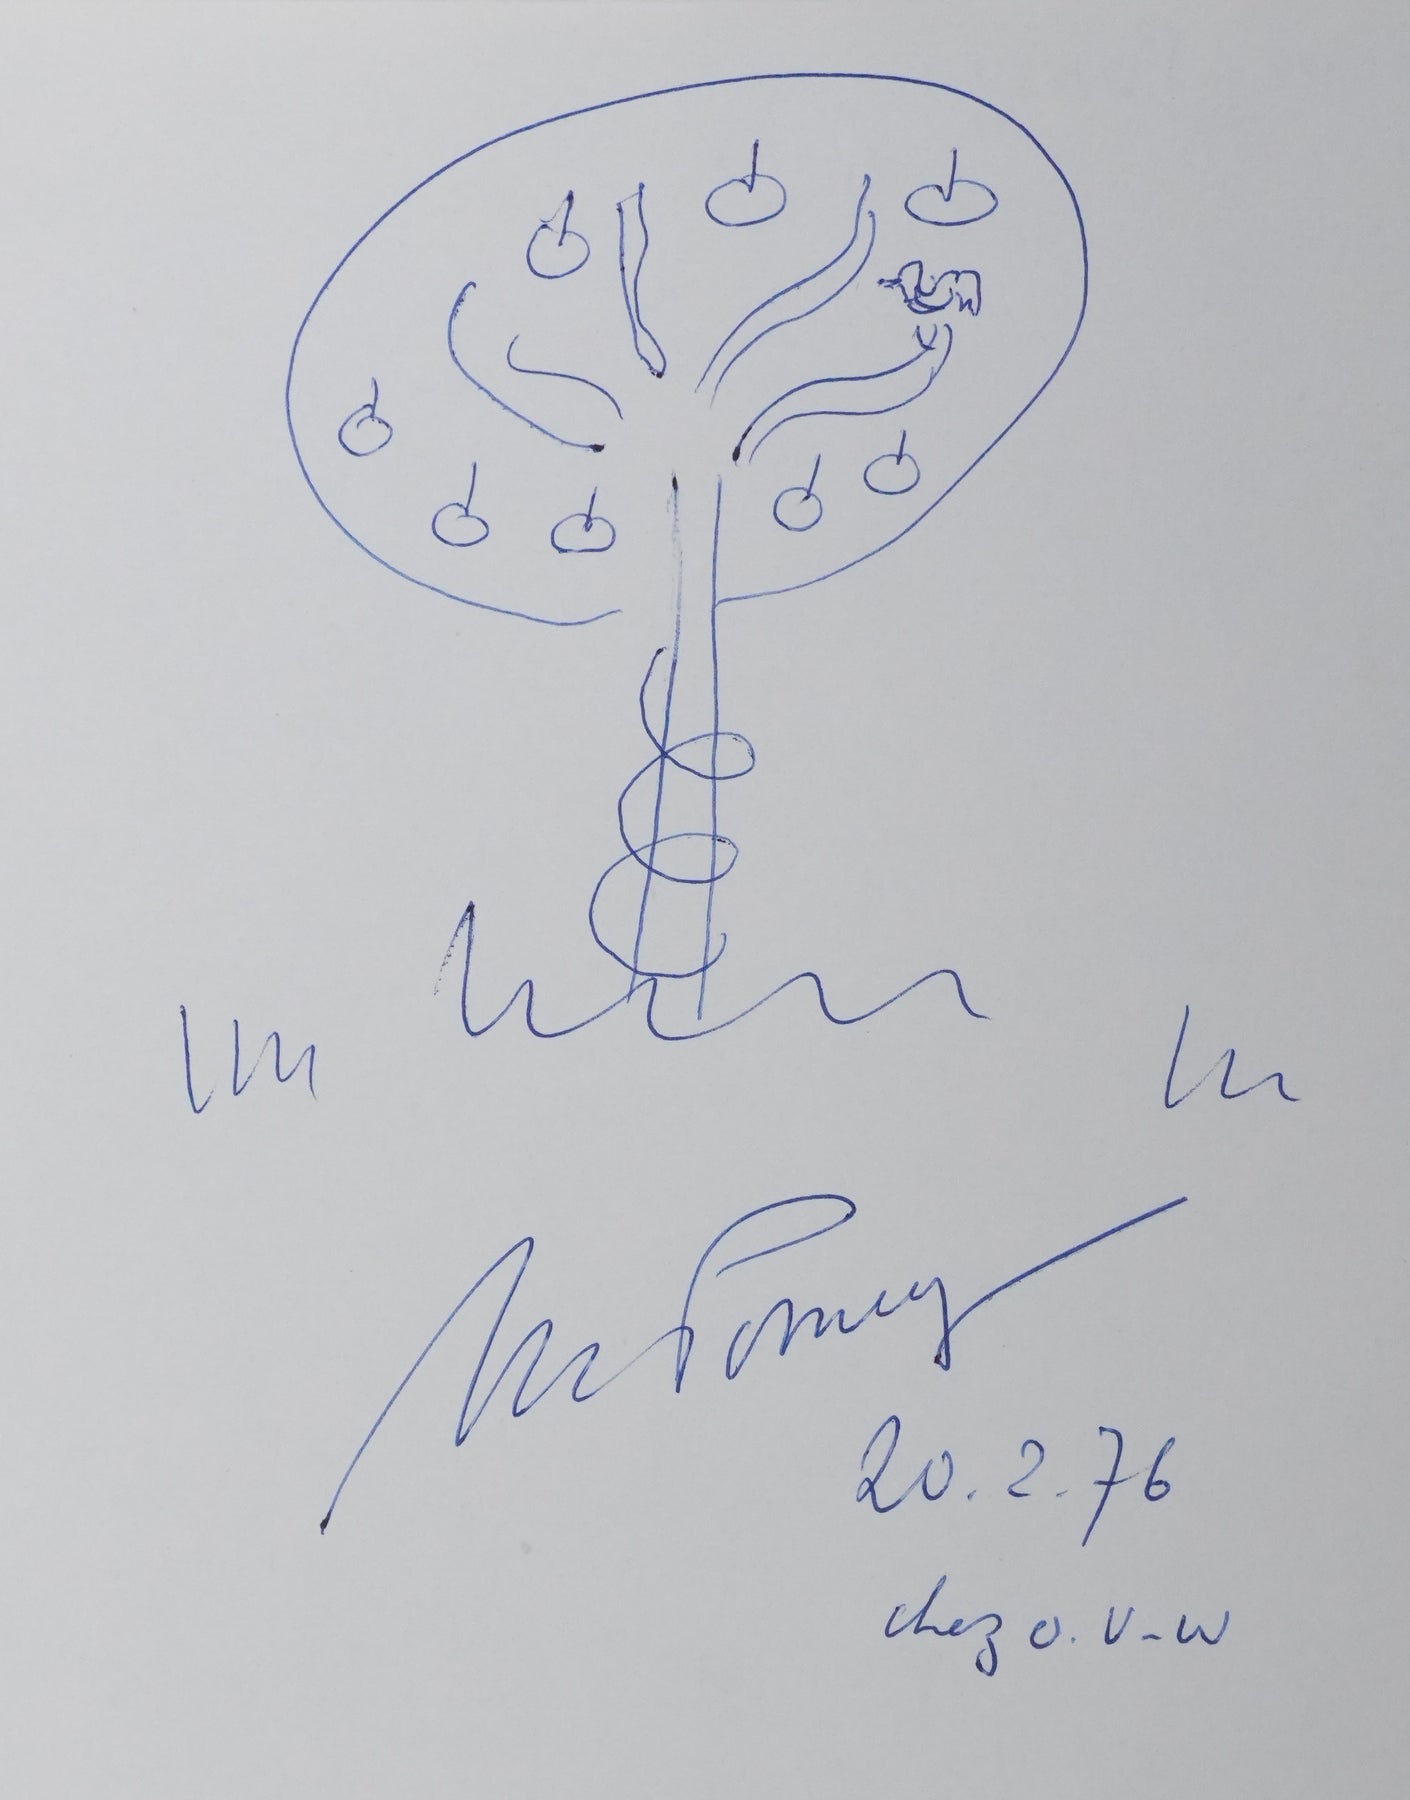 20.2.76
chez O. V-W